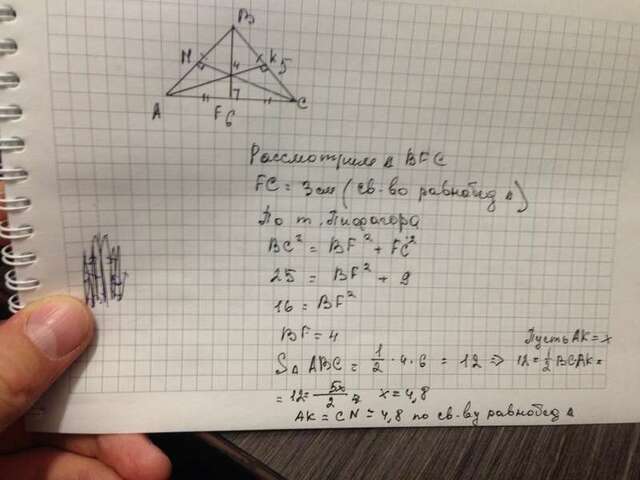 B
N
4
K
5
A
F
6
C
Рассмотрим Δ BFC
FC = 3см (св-во равнобед Δ)
По т. Пифагора
BC² = BF² + FC²
25 = BF² + 9
16 = BF²
BF = 4
Пусть AK = x
S Δ ABC = 1/2 · 4 · 6 = 12 => 12 = 1/2 BC AK =
= 12 = 5x/2 x = 4,8
AK = CN = 4,8 по св-ву равнобед Δ